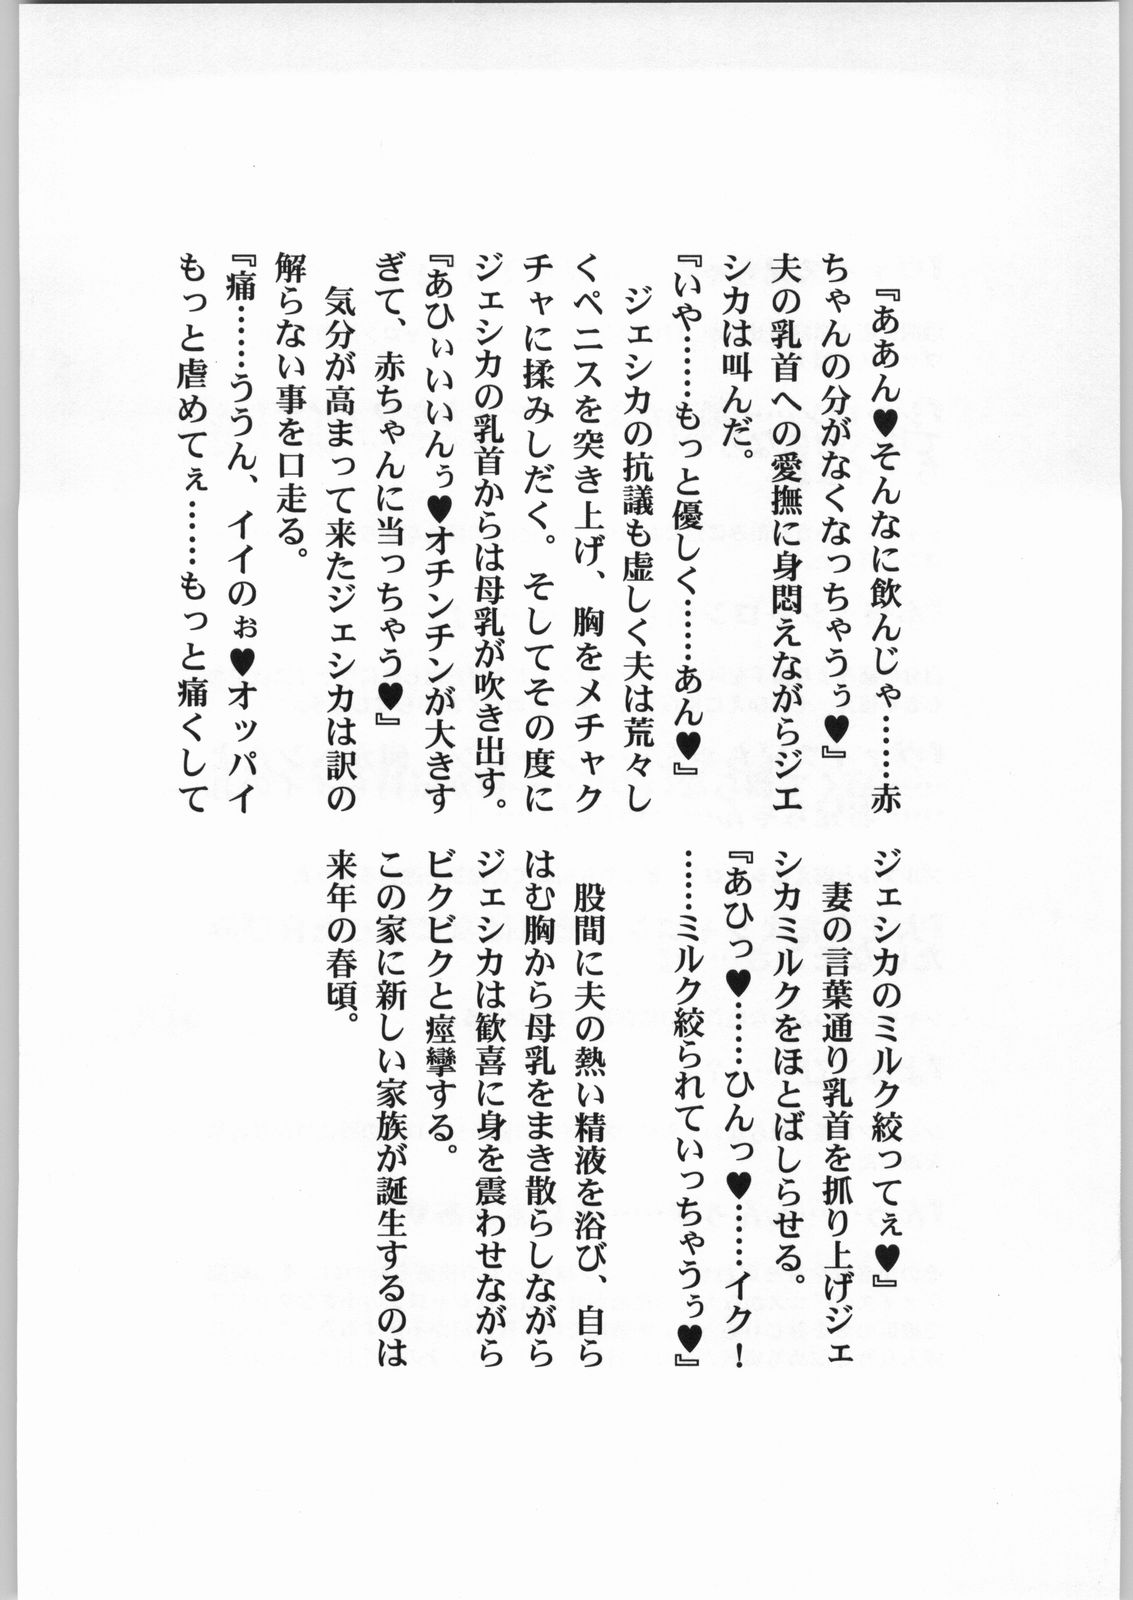 『ああん♥そんなに飲んじゃ……赤
ちゃんの分がなくなっちゃうぅ♥』
夫の乳首への愛撫に身悶えながらジェ
シカは叫んだ。
『いや……もっと優しく……あん♥』
ジェシカの抗議も虚しく夫は荒々し
くペニスを突き上げ、胸をメチャク
チャに揉みしだく。そしてその度に
ジェシカの乳首からは母乳が吹き出す。
『あひぃいいんぅ♥オチンチンが大きす
ぎて、赤ちゃんに当っちゃう♥』
気分が高まって来たジェシカは訳の
解らない事を口走る。
『痛……ううん、イイのぉ♥オッパイ
もっと虐めてぇ……もっと痛くして
ジェシカのミルク絞ってぇ♥』
妻の言葉通り乳首を抓り上げジェ
シカミルクをほとばしらせる。
『あひっ♥……ひんっ♥……イク！
……ミルク絞られていっちゃうぅ♥』
股間に夫の熱い精液を浴び、自ら
はむ胸から母乳をまき散らしながら
ジェシカは歓喜に身を震わせながら
ビクビクと痙攣する。
この家に新しい家族が誕生するのは
来年の春頃。